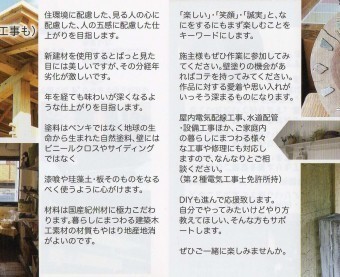 工事も)
住環境に配慮した、見る人の心に
配慮した、人の五感に配慮した仕
上がりを目指します。
新建材を使用するとぱっと見た
目には美しいですが、その分経年
劣化が激しいです。
年を経ても味わいが深くなるよう
な仕上がりを目指します。
塗料はペンキではなく地球の生
命から生まれた自然塗料、壁には
ビニールクロスやサイディング
ではなく
漆喰や珪藻土・板そのものをなる
べく使うように心がけます。
材料は国産紀州材に極力こだわ
ります。暮らしにまつわる建築木
工素材の材質もやはり地産地消
がよいのです。
「楽しい」・「笑顔」・「誠実」と、な
にをするにもまず楽しむことを
キーワードにします。
施主様もぜひ作業に参加してみ
てください。壁塗りの機会があ
ればコテを持ってみてください。
作品に対する愛着や思い入れが
いっそう深まるものになります。
屋内電気配線工事、水道配管
・設備工事ほか、ご家庭内
の暮らしにまつわる様々
な工事や修理にも対応し
ますので、なんなりとご相
談ください。
(第2種電気工事士免許所持)
DIYも進んで応援致します。
自分でやってみたいけどやり方
教えてほしい、そんな方もサポ
ートします。
ぜひご一緒に楽しみませんか。